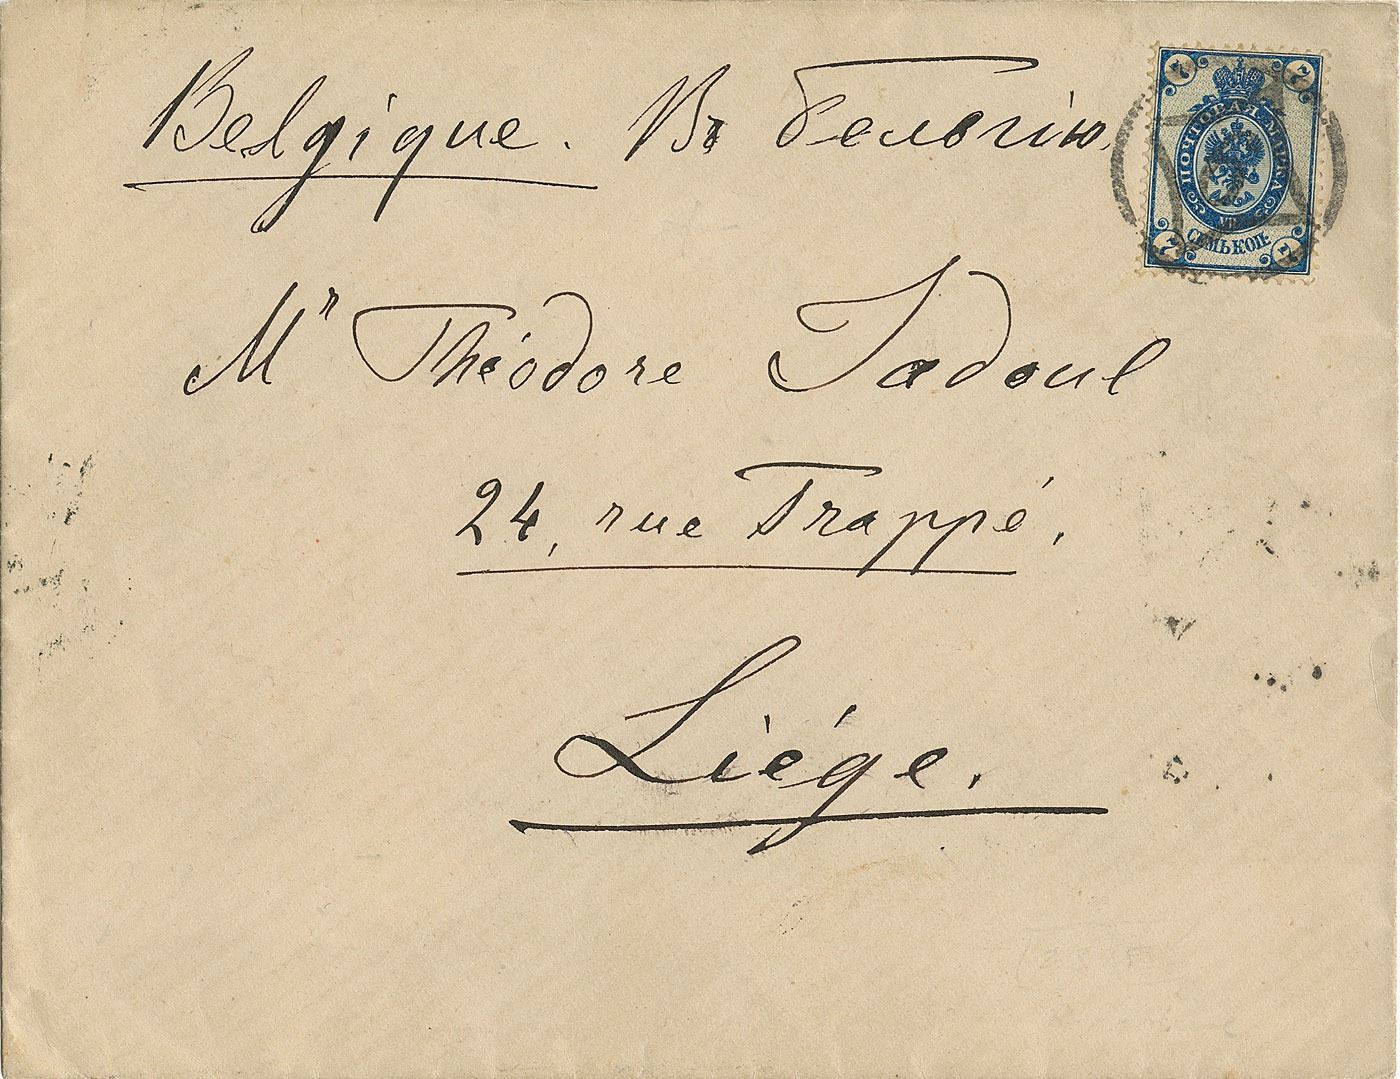 Belgique. Въ Бельгію.
7 7
ПОЧТОВАЯ МАРКА
СЕМЬ КОП.
7 7
Mr Théodore Jadoul
24, rue Trappé.
Liége.